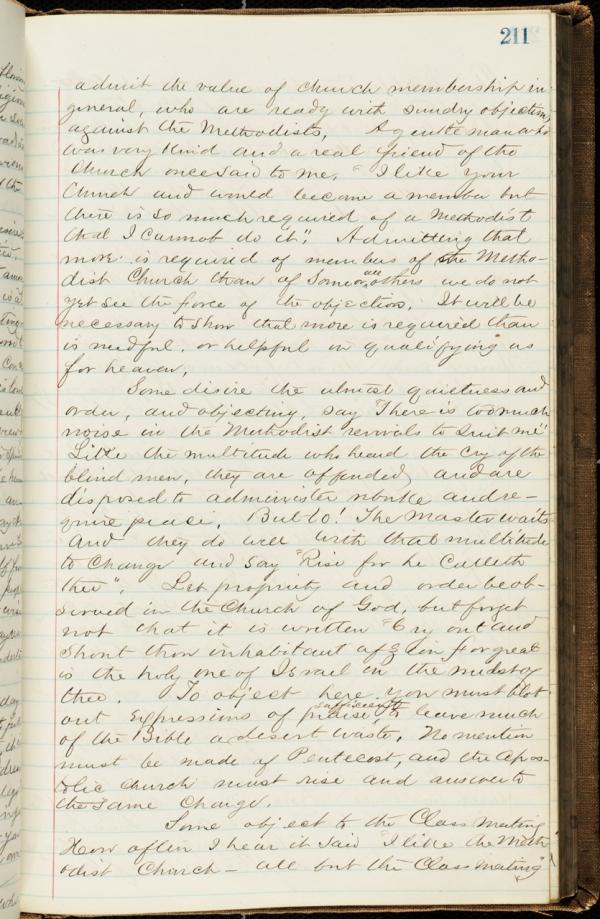 211
admit the value of church membership in
general, who are ready with sundry objections
against the Methodists. A gentleman who
was very kind and a real friend of the
Church once said to me, "I like your
Church and would become a member but
there is so much required of a Methodist
that I cannot do it". Admitting that
more is required of members of the Metho-
dist Church than of some or all others we do not
yet see the force of the objection. It will be
necessary to show that more is required than
is needful, or helpful in qualifying us
for heaven.
Some desire the utmost quietness and
order, and objecting, say "There is too much
noise in the Methodist revivals to suit me"
Like the multitude who heard the cry of the
blind men, they are offended, and are
disposed to administer rebuke and re-
quire peace. But lo! The Master waits
and they do well with that multitude
to change and say "Rise for he calleth
thee". Let propriety and order be ob-
served in the Church of God, but forget
not that it is written "Cry out and
shout thou inhabitant of Zion for great
is the holy one of Israel in the midst of
thee. To object here you must blot
out expressions of praise sufficient to leave much
of the Bible a desert waste. No mention
must be made of Pentecost, and the Apos-
tolic church must rise and answer to
the same charge.
Some object to the Class meeting
How often I hear it said "I like the Meth-
odist Church – all but the Class meeting"